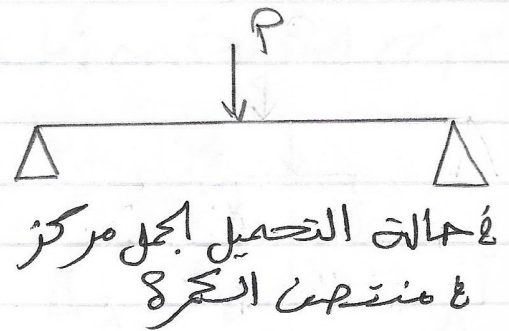 P
في حالة التحميل بحمل مركز
في منتصف الكمرة